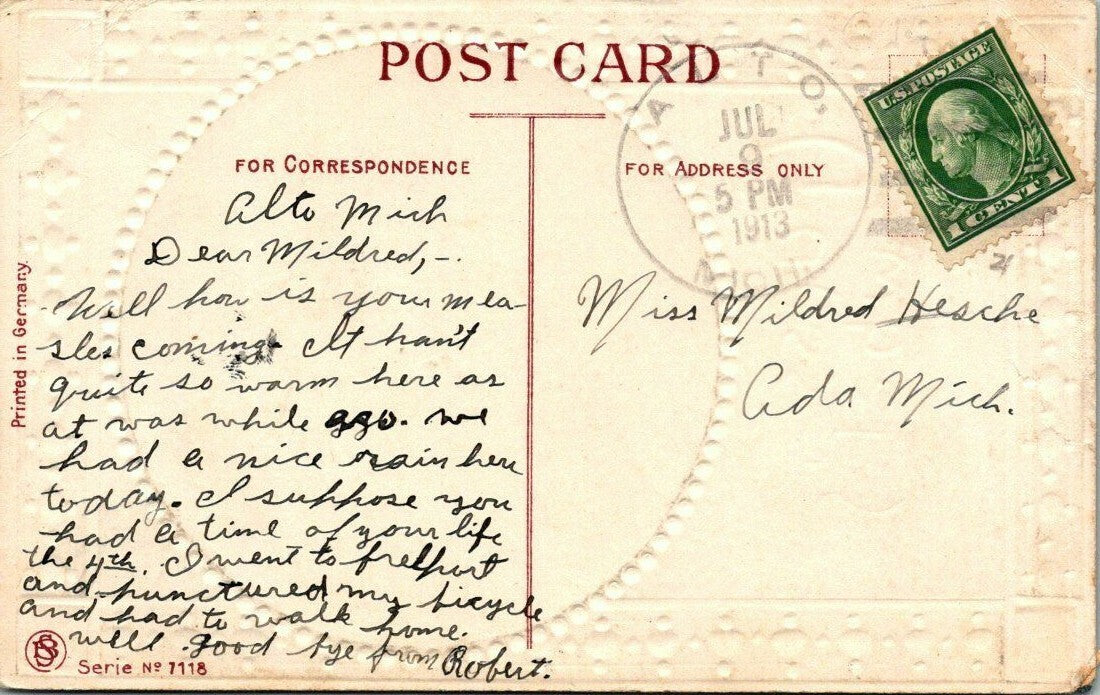 POST CARD
FOR CORRESPONDENCE
FOR ADDRESS ONLY
ALTO,
JUL
9
5 PM
1913
MICH.
U.S. POSTAGE
1 CENT 1
Alto Mich
Dear Mildred,-.
Well how is your mea-
sles coming. It han't
quite so warm here as
at was while ago. we
had a nice rain here
today. I suppose you
had a time of your life
the 4th. I went to freeport
and punctured my bicycle
and had to walk home.
well good bye from Robert.
Miss Mildred Hesche
Ada Mich.
Printed in Germany.
Serie No 7118